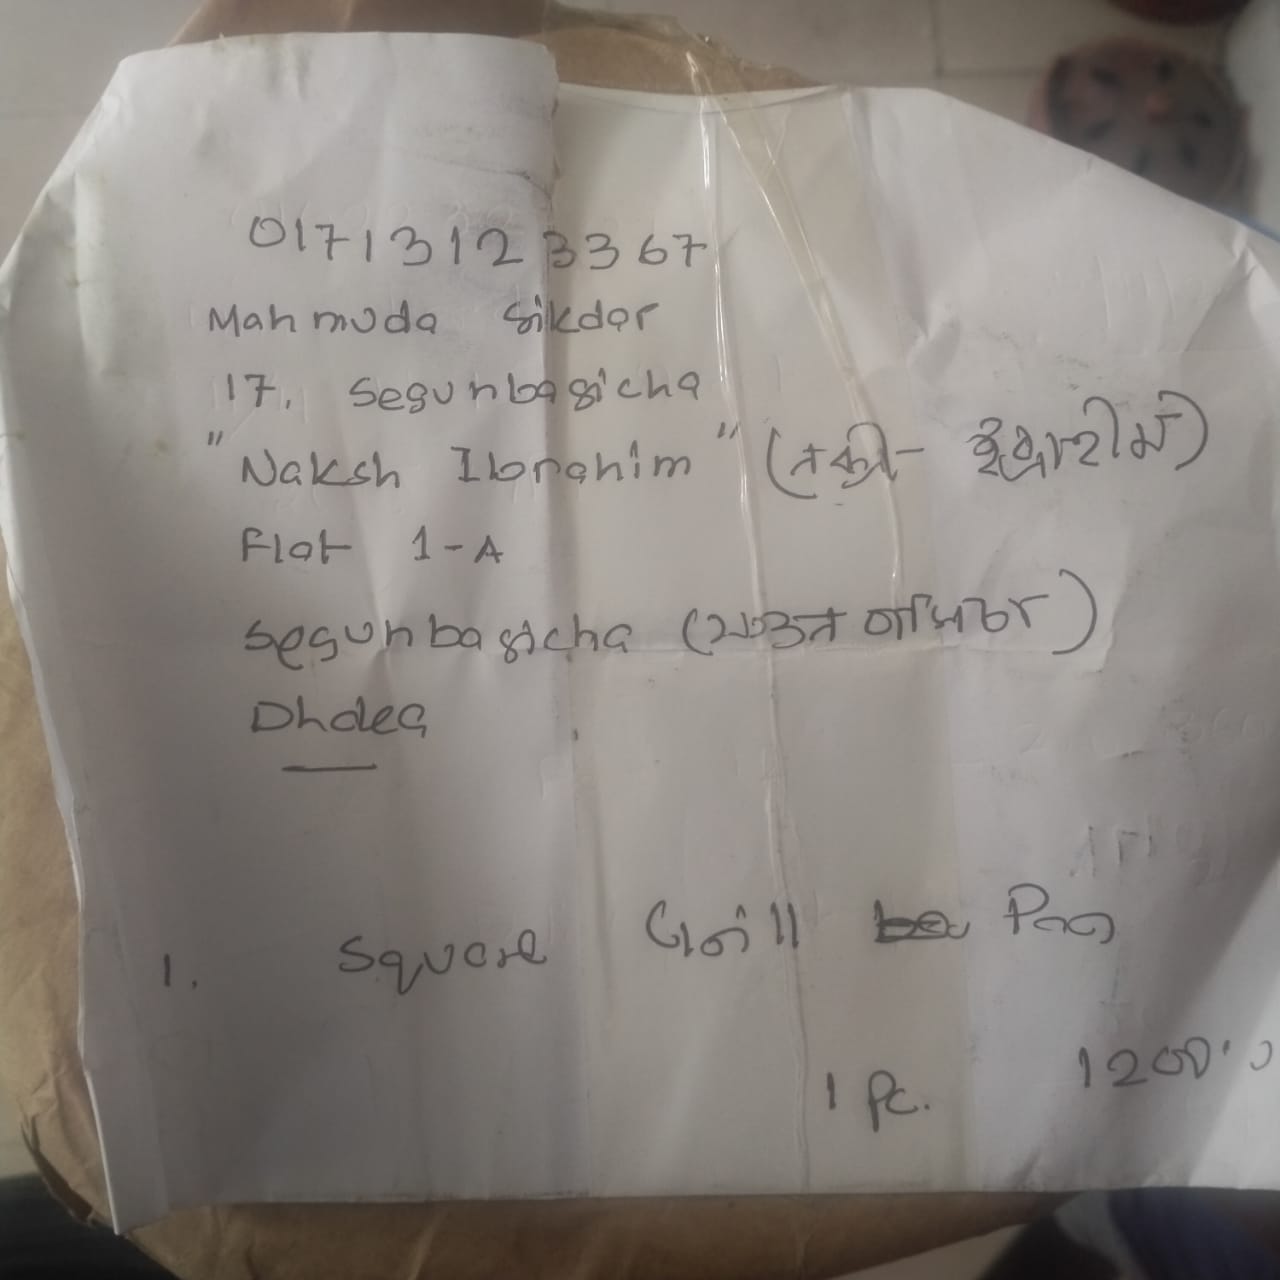 01713123367
Mahmuda Sikdar
17. Segunbagicha
"Naksh Ibrahim" (নকশী- ইব্রাহীম)
Flat 1-A
Segunbagicha
Dhaka
1. Square Grill Pan
1 Pc. 1200.0